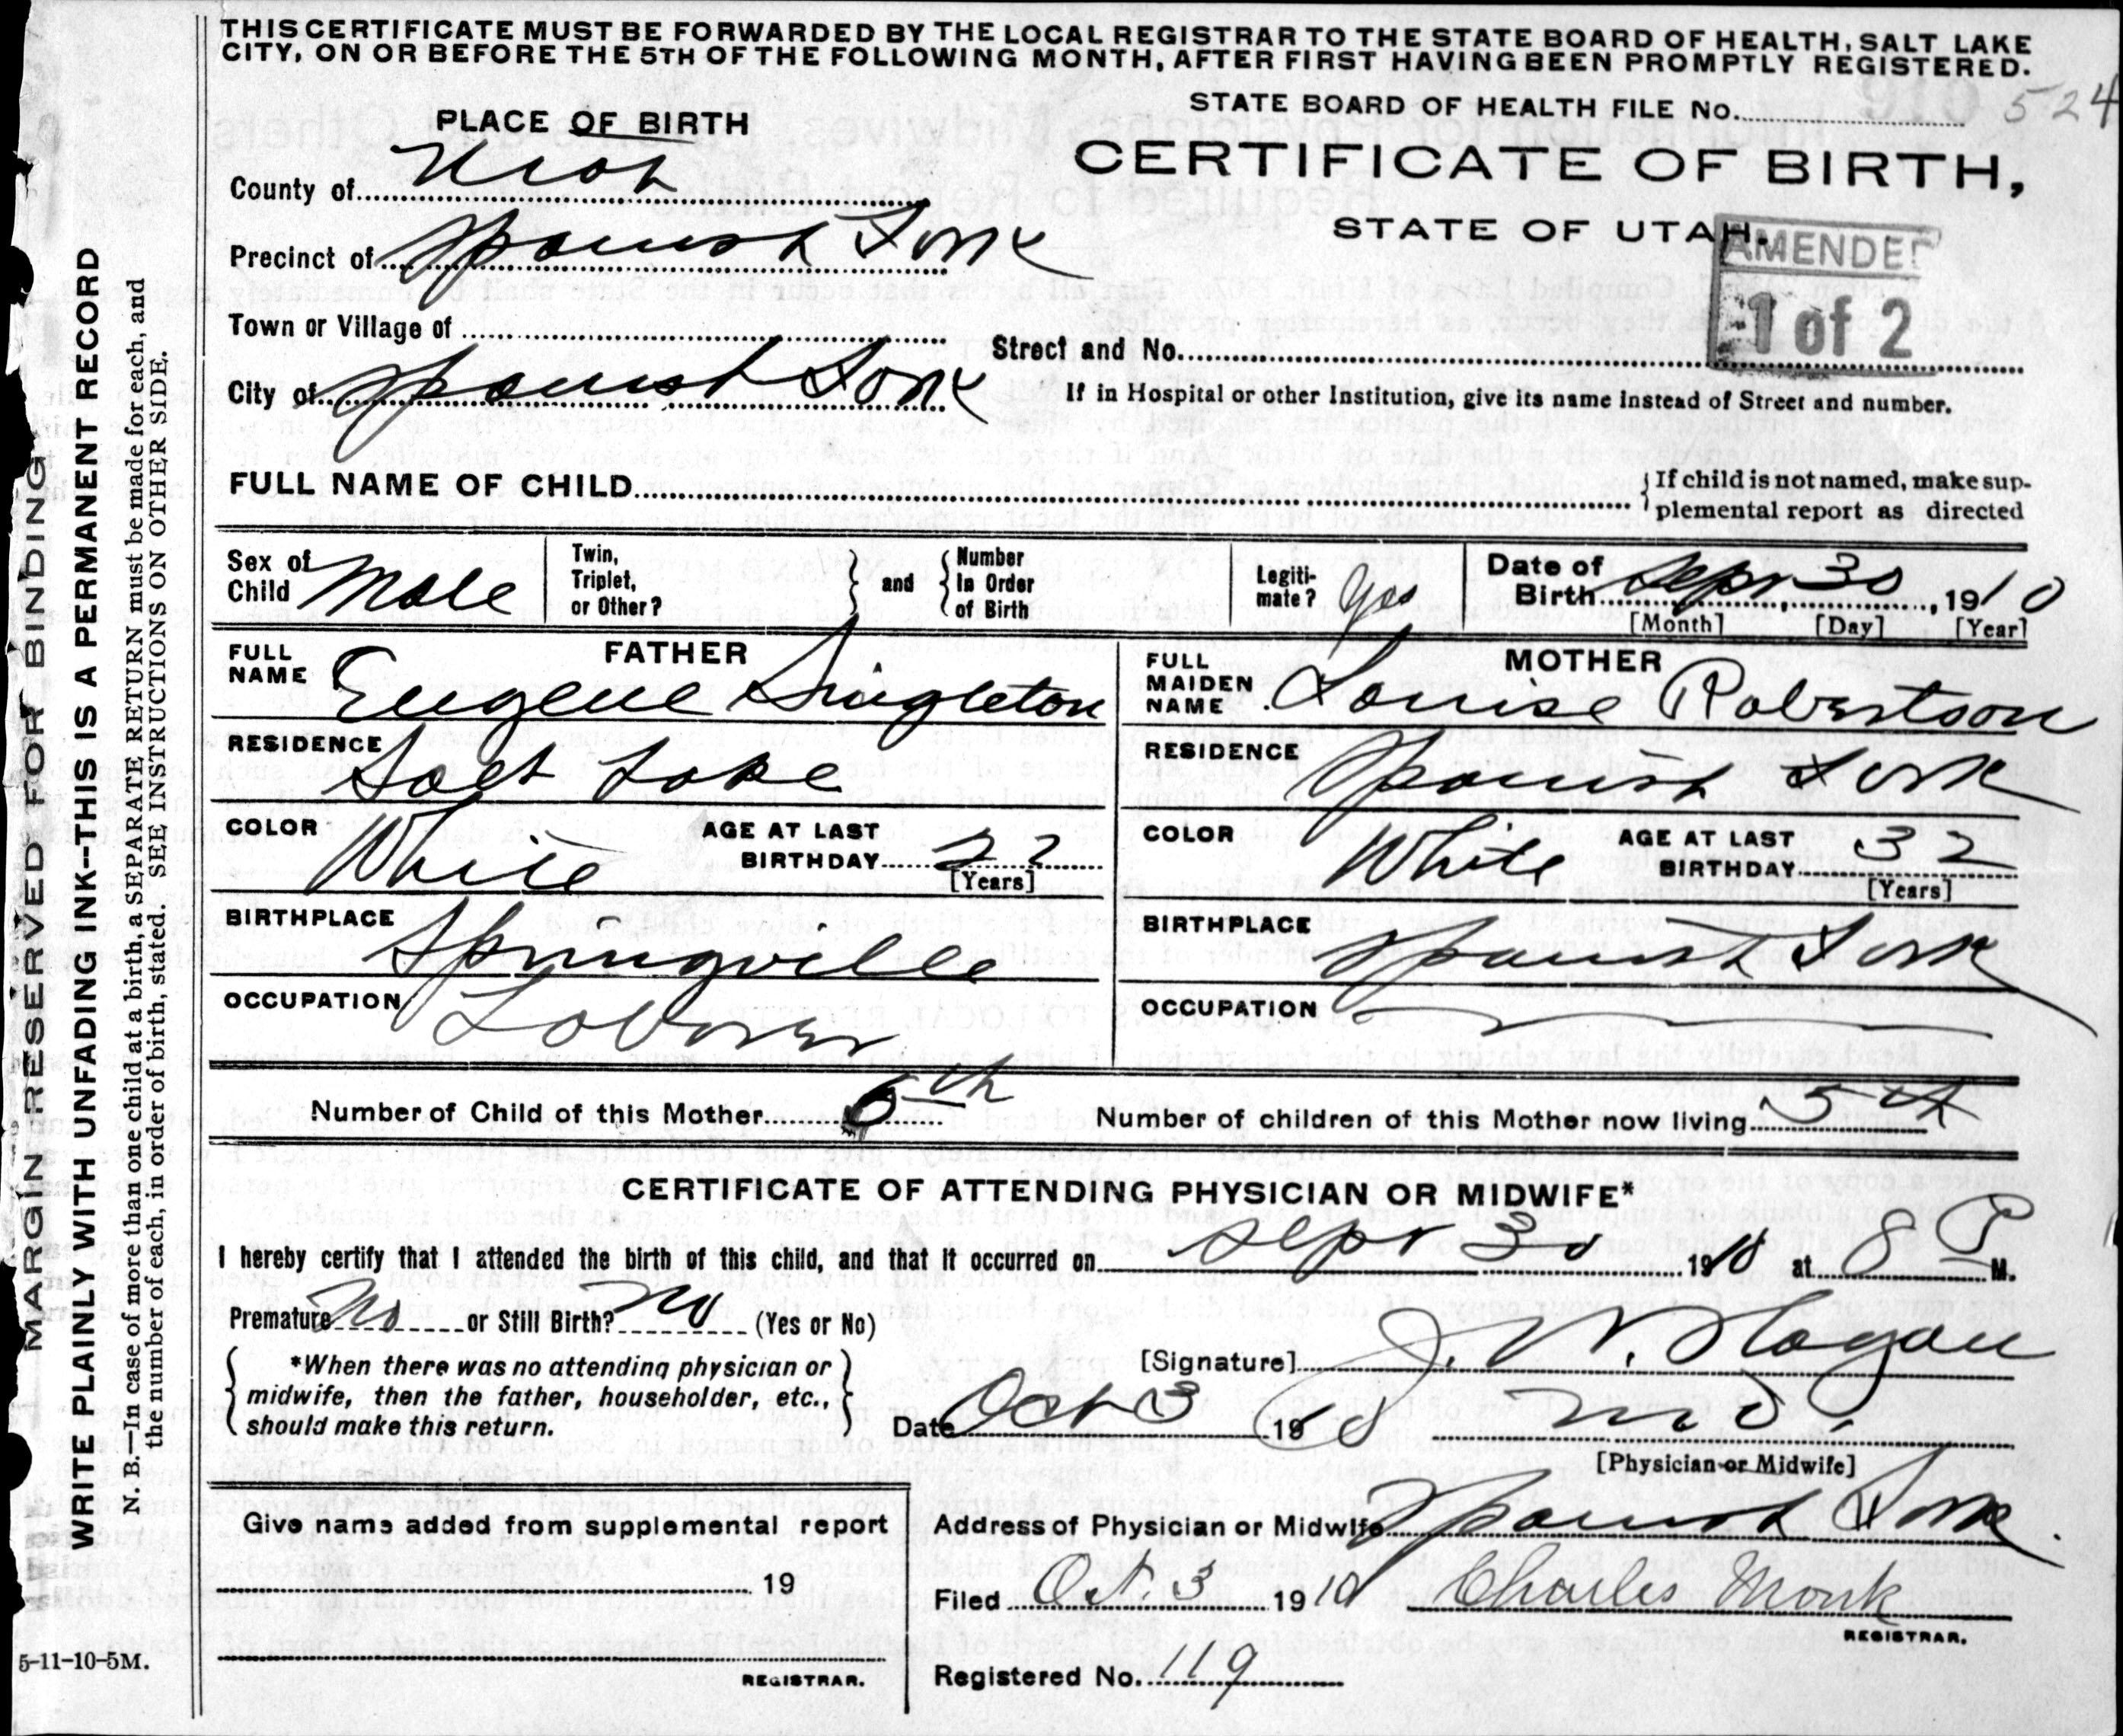 THIS CERTIFICATE MUST BE FORWARDED BY THE LOCAL REGISTRAR TO THE STATE BOARD OF HEALTH, SALT LAKE
CITY, ON OR BEFORE THE 5TH OF THE FOLLOWING MONTH, AFTER FIRST HAVING BEEN PROMPTLY REGISTERED.
STATE BOARD OF HEALTH FILE No. 524
PLACE OF BIRTH
CERTIFICATE OF BIRTH,
County of Utah
STATE OF UTAH.
AMENDED
1 of 2
Precinct of Spanish Fork
Town or Village of
Street and No.
City of Spanish Fork
If in Hospital or other Institution, give its name instead of Street and number.
FULL NAME OF CHILD
If child is not named, make sup-
plemental report as directed
Sex of Child Male
Twin, Triplet, or Other?
and
Number In Order of Birth
Legiti-mate? Yes
Date of Birth Sept 30, 1910
[Month] [Day] [Year]
FATHER
FULL NAME Eugene Singleton
RESIDENCE Salt Lake
COLOR White
AGE AT LAST BIRTHDAY 22
[Years]
BIRTHPLACE Springville
OCCUPATION Laborer
MOTHER
FULL MAIDEN NAME Louise Robertson
RESIDENCE Spanish Fork
COLOR White
AGE AT LAST BIRTHDAY 32
[Years]
BIRTHPLACE Spanish Fork
OCCUPATION
Number of Child of this Mother 6th
Number of children of this Mother now living 5th
CERTIFICATE OF ATTENDING PHYSICIAN OR MIDWIFE*
I hereby certify that I attended the birth of this child, and that it occurred on Sept 30 1910 at 8 P M.
Premature No or Still Birth? No (Yes or No)
*When there was no attending physician or
midwife, then the father, householder, etc.,
should make this return.
[Signature] J. W. Hagan
Date Oct 3 1910 M.D.
[Physician or Midwife]
Give name added from supplemental report
19
REGISTRAR.
Address of Physician or Midwife Spanish Fork
Filed Oct. 3 1910 Charles Monk
REGISTRAR.
Registered No. 119
MARGIN RESERVED FOR BINDING
WRITE PLAINLY WITH UNFADING INK--THIS IS A PERMANENT RECORD
N. B.—In case of more than one child at a birth, a SEPARATE RETURN must be made for each, and
the number of each, in order of birth, stated. SEE INSTRUCTIONS ON OTHER SIDE.
5-11-10-5M.